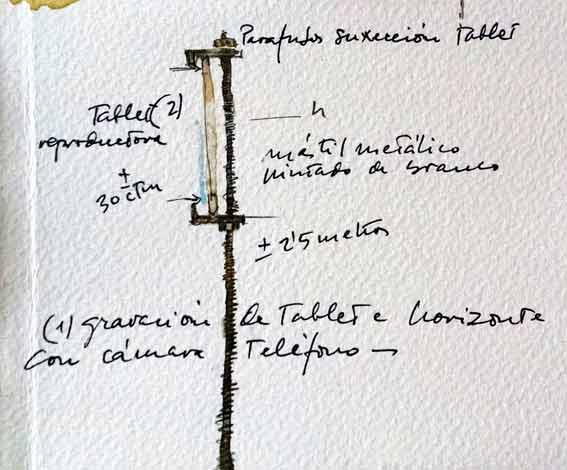 Parafusos suxección Tablet
Tablet (2)
reproductora
±
30 ctm
h
mástil metálico
pintado de branco
± 2'5 metros
(1) gravación de Tablet e horizonte
con cámara Teléfono —